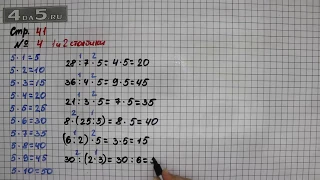 4DA5.RU
Стр. 41
№ 4 1 и 2 столбики
5·1=5
5·2=10
5·3=15
5·4=20
5·5=25
5·6=30
5·7=35
5·8=40
5·9=45
5·10=50
1 2
28:7·5=4·5=20
1 2
36:4·5=9·5=45
1 2
21:3·5=7·5=35
2 1
8·(25:5)=8·5=40
1 2
(6:2)·5=3·5=15
2 1
30:(2·3)=30:6=